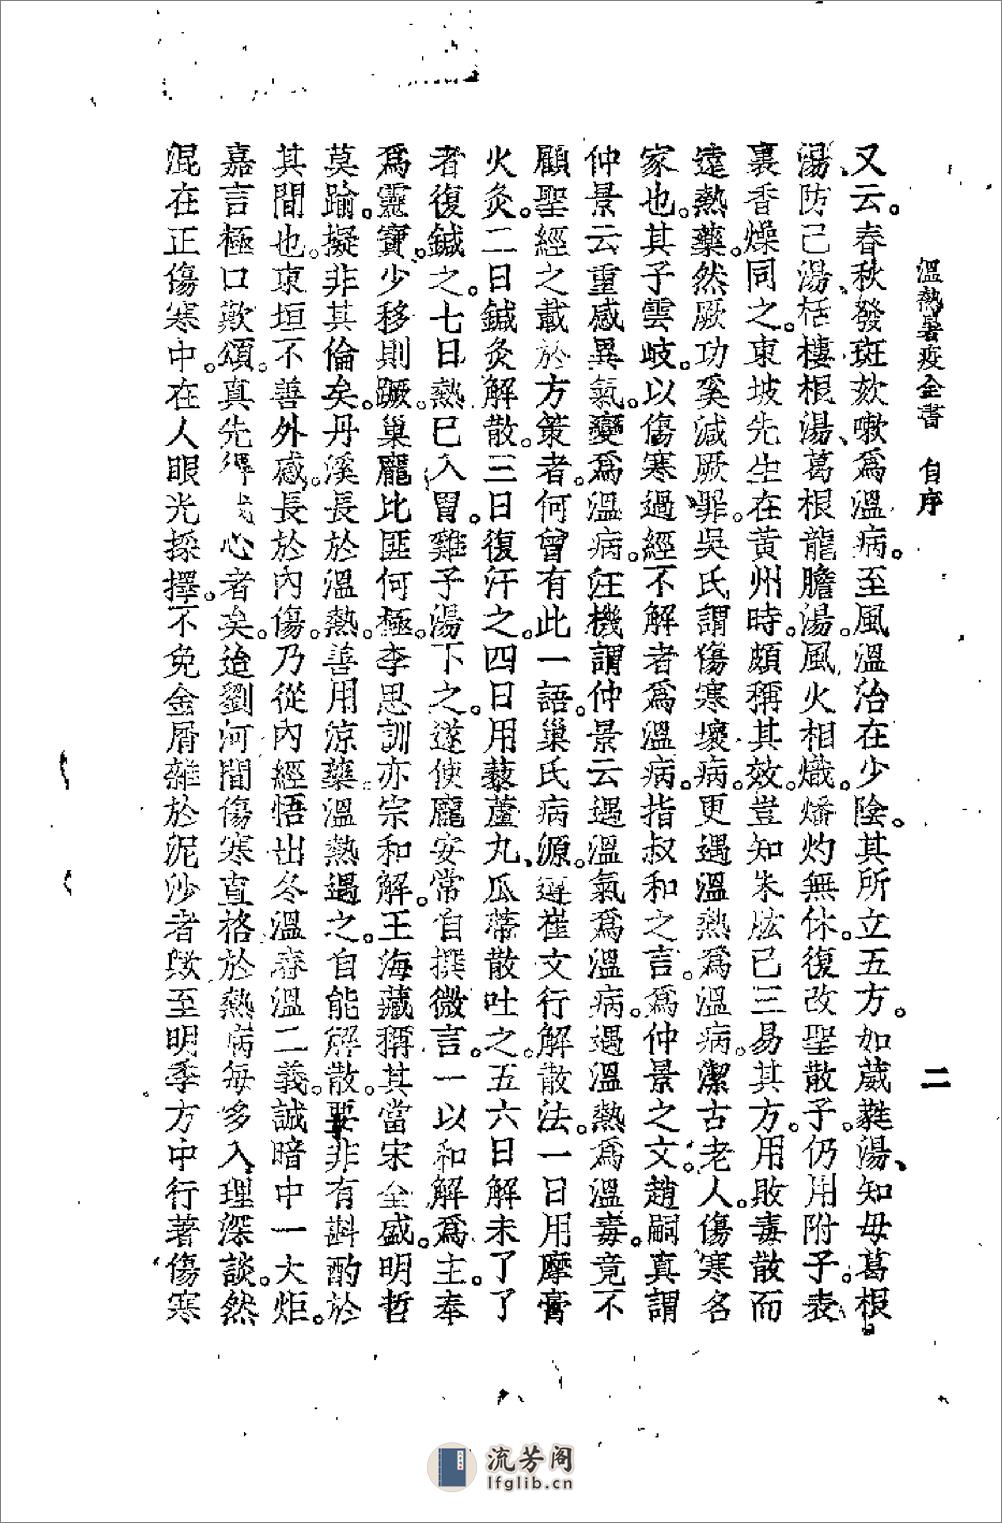 溫熱暑疫全書　自序　二
又云。春秋、發斑欬嗽爲溫病。至風溫治在少陰。其所立五方。如葳蕤湯、知母葛根
湯、防己湯、栝樓根湯、葛根龍膽湯。風火相熾。燔灼無休。復改聖散子。仍用附子。表
裏香燥同之。東坡先生在黃州時。頗稱其效。豈知朱肱已三易其方。用敗毒散而
遠熱藥。然厥功奚減厥罪。吳氏謂傷寒壞病。更遇溫熱爲溫病。潔古老人。傷寒名
家也。其子雲岐。以傷寒過經不解者爲溫病。指叔和之言。爲仲景之文。趙嗣真謂
仲景云重感異氣。變爲溫病。汪機謂仲景云遇溫氣爲溫病。遇溫熱爲溫毒。竟不
顧聖經之載於方策者。何曾有此一語。巢氏病源、遵崔文行解散法。一日用摩膏
火灸。二日鍼灸解散。三日復汗之。四日用藜蘆丸、瓜蒂散吐之。五六日解未了了
者復鍼之。七日熱已入胃。雞子湯下之。遂使龐安常自撰微言。一以和解。爲主。奉
爲靈寶。少移則蹶。巢龐比匪何極。李思訓亦宗和解。王海藏稱其當宋全盛。明哲
莫踰。擬非其倫矣。丹溪長於溫熱。善用涼藥。溫熱遇之。自能解散。要非有斟酌於
其間也。東垣不善外感。長於內傷。乃從內經悟出冬溫春溫二義。誠暗中一大炬。
嘉言極口歎頌。真先得我心者矣。迨劉河間傷寒直格於熱病每多入理深談。然
混在正傷寒中。在人眼光採擇。不免金屑雜於泥沙者歟至明季方中行著傷寒
流芳阁
lfglib.cn